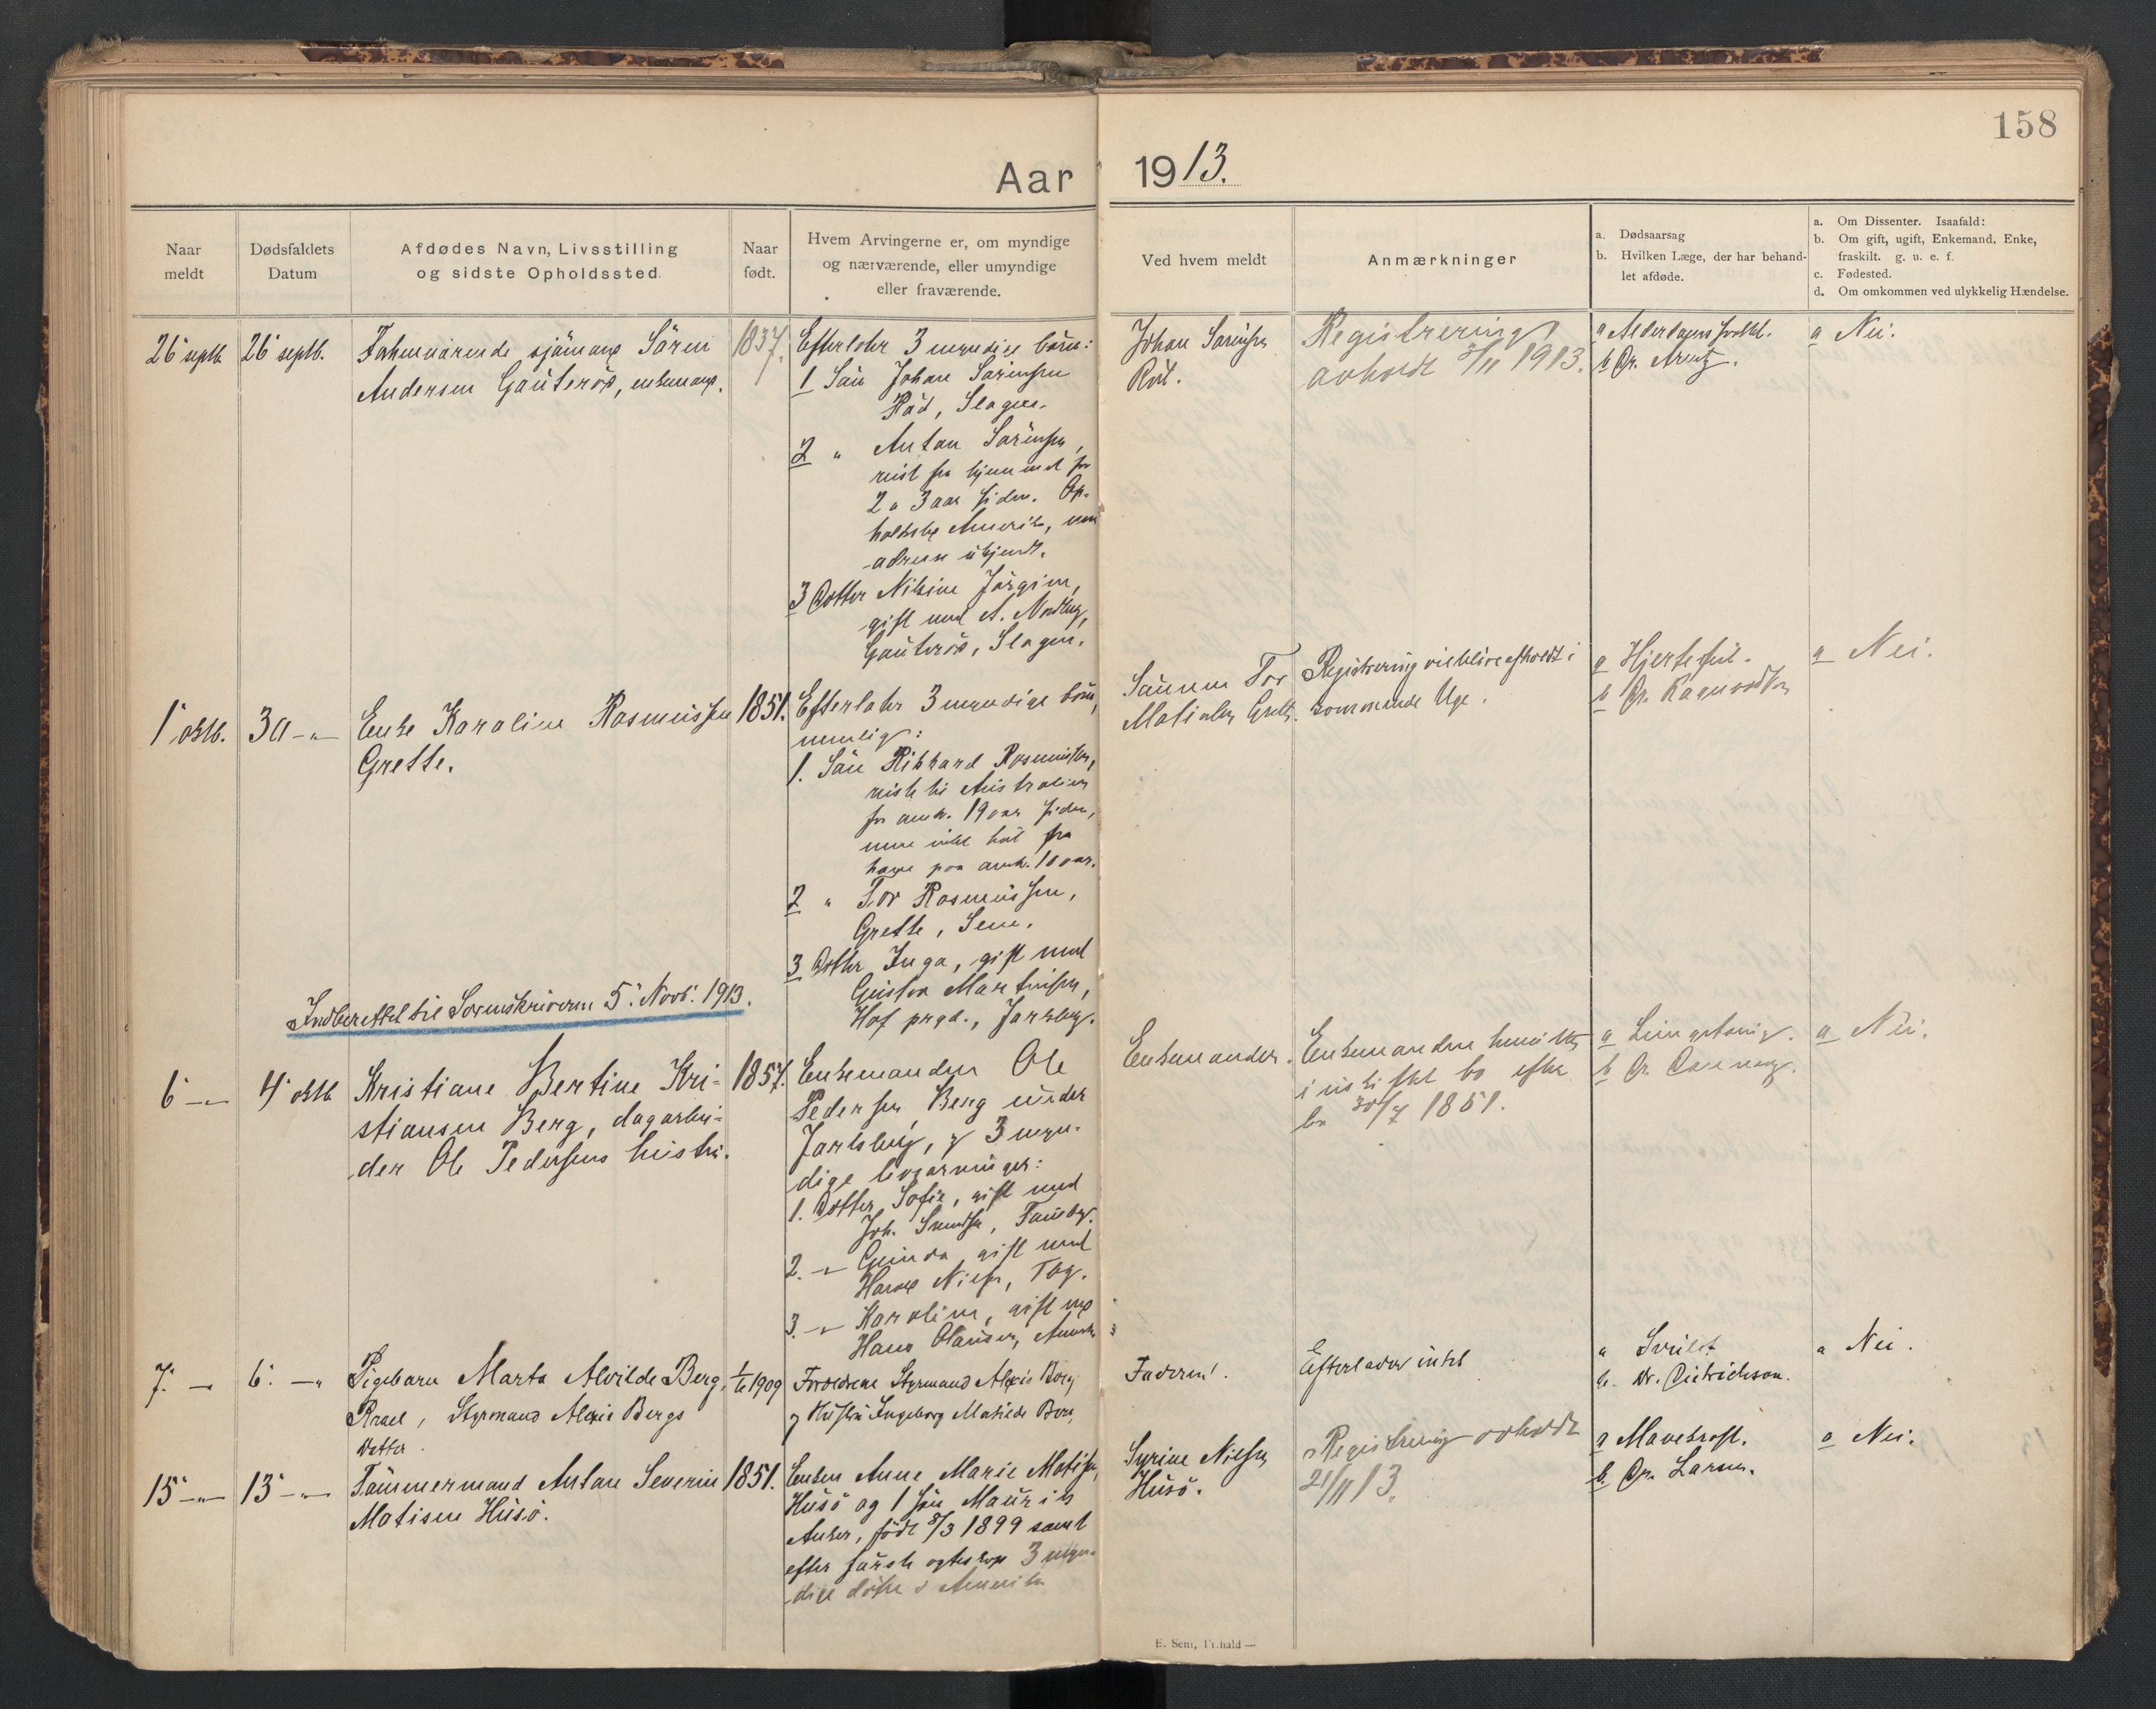 158
Aar 1913.
Naar meldt
Dødsfaldets Datum
Afdødes Navn, Livsstilling og sidste Opholdssted.
Naar født.
Hvem Arvingerne er, om myndige og nærværende, eller umyndige eller fraværende.
Ved hvem meldt
Anmærkninger
a. Dødsaarsag
b. Hvilken Læge, der har behandlet afdøde.
a. Om Dissenter. Isaafald:
b. Om gift, ugift, Enkemand, Enke, fraskilt. g. u. e. f.
c. Fødested.
d. Om omkommen ved ulykkelig Hændelse.
26 septb.
26 septb.
Fahrenværende sjømand Sören
Andersen Gauterød, enkemand.
1837.
Efterlater 3 myndige börn:
1 Sön Johan Sörensen
Råd, Slagen.
2 " Anton Sörensen,
reist fra hjemmet for
2 a 3 aar siden. Op-
holdsted Amerika, men
adresse ukjendt.
3 Datter Nilsine Jörgine,
gift med A.
Gauterød, Slagen.
Johan Sörensen
Registrering
avholdt 3/11 1913.
a Alderdoms
b Dr. Arentz.
a Nei.
1 oktb.
30 -"-
Enke Karoline Rasmussen
Grette.
1851.
Efterlater 3 myndige börn,
nemlig:
1. Sön Rikkard Rasmussen,
reiste til Australien
for omtr. 19 aar siden,
men ikke hört fra
ham paa omtr. 10 aar.
2 " Tor Rasmussen,
Grette, Sem.
3 Datter Inga, gift med
Gustav Martinsen,
Hof prgd., Jarlsberg.
Sönnen Tor
Grette.
Registrering vil blive afholdt i
kommende Uge.
a Hjertefeil.
b Dr.
a Nei.
Indberettet til Sorenskriveren 5. Novb. 1913.
6 -"-
4 oktb
Kristiane Bertine Kri-
stiansen Berg, dagarbei-
der Ole Pedersens hustru.
1857.
Enkemanden Ole
Pedersen Berg under
Jarlsberg, og 3 myn-
dige livsarvinger:
1. Datter Sofie, gift med
Joh.
2. -"- Gunda, gift med
3. -"- Karoline, gift med
Hans Olausen,
Enkemanden.
Enkemanden hensitter
i uskiftet bo efter
lov 30/7 1851.
a
b Dr.
a Nei.
7. -"-
6. -"-
Pigebarn Marta Alvilde Berg,
Rrael, Styrmand Alexis Bergs
Datter.
1909
Forældrene Styrmand Alexis Berg
og Hustru Ingeborg Matilde Berg
Faderen.
Efterlader intet
a
b. Dr. Dietrichson.
a Nei.
15 -"-
13 -"-
Tömmermand Anton Severin
Matisen Husö.
1851.
Enken Anne Marie Matisen,
Husö og 1 sön Maurits
Anker, född 8/3 1899 samt
efter förste egteskap 3 myn-
dige dötre i Amerika
Syrine Nilsen
Husö.
Registrering avholdt
21/11 13.
a Mavekræft.
b. Dr. Larsen.
a Nei.